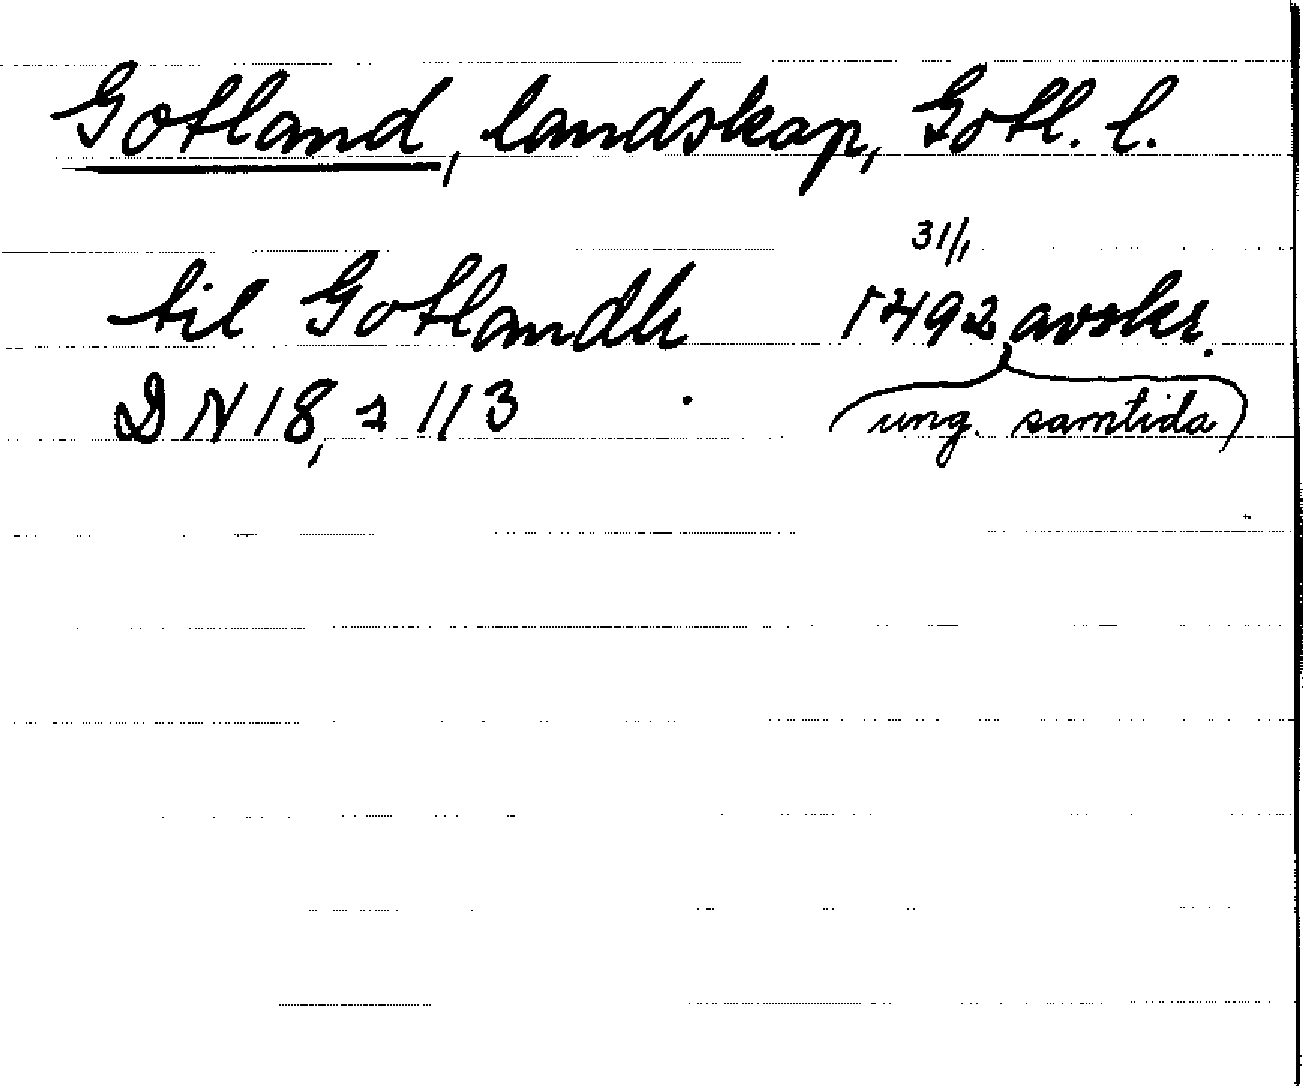 Gotland, landskap, Gotl. l.
31/1
til Gotlandh 1492 avskr.
DN 18, s 113 (ung. samtida)